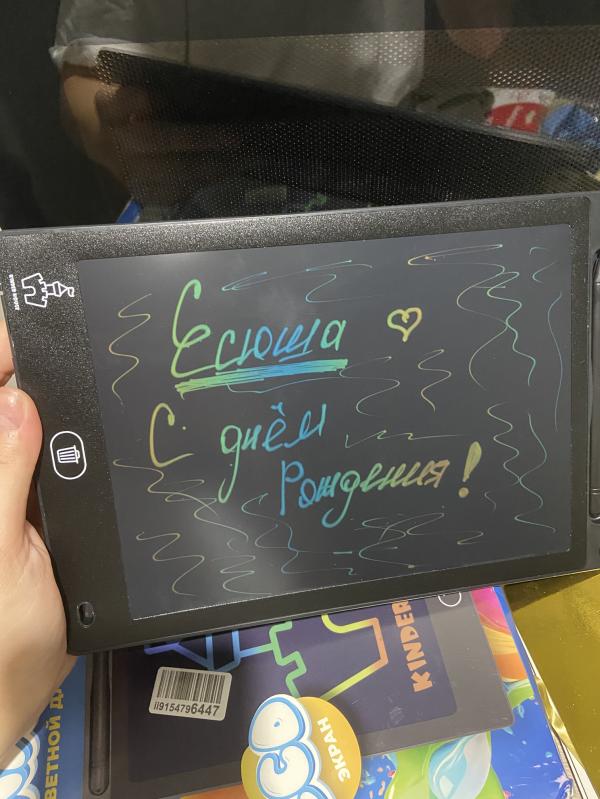 Есюша
С днём
Рождения!
ii9154796447
KINDER
ЭКРАН